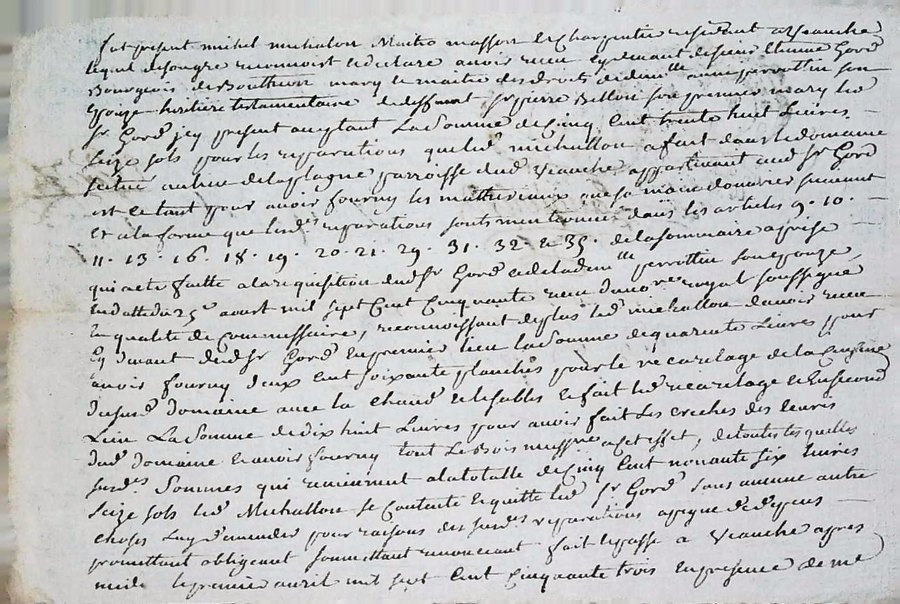 fut present michel michalon Maitre masson et Charpentier residant a Veauche
lequel de son gre reconnoist et declare avoir receu cy devant de sieur Etienne Gord
Bourgeois de Boutheon mary et maitre des droits de dem^lle anne perrottin son
Epouze heritiere testamentaire de deffunt Sr pierre Billon son premier mary led
Sr Gord icy present acceptant La Somme de Cinq Cent trente huit Livres
Seize sols pour les reparations que led michallon a fait dans le domaine
scitué au lieu de la plagne parroisse dud Veauche appartenant aud Sr Gord
et ce tant pour avoir fourny les matheriaux que sa main d'ouvrier suivant
Et a la forme que lesd^s reparations sont mentionnées dans les articles 9 . 10 .
11 . 13 . 16 . 18 . 19 . 20 . 21 . 29 . 31 . 32 . et 35 . de la sommaire apprise
qui a eté faitte a la requisition dud Sr Gord et de lad dem^lle perrottin son epouze
En datte du 25^e aoust mil sept Cent Cinquante neuf no^re royal soussigné
En qualité de Commissaire, reconnoissant de plus led michallon d'avoir receu
Cy devant dud Sr Gord En premier lieu La Somme de quarente Livres pour
avoir fourny deux Cent soixante planches pour le recarelage de la Cuizine
du susd domaine avec la chaud et le sable et fait led recarelage et En second
Lieu La Somme de dix huit Livres pour avoir fait Les creches des Ecuries
dud domaine et avoir fourny tout Le Bois necessre a cet effet, de toutes lesquelles
susd^s Sommes qui reviennent a la totalle de Cinq Cent nonante six Livres
Seize sols led Michallon se Contente et quitte led Sr Gord sans aucune autre
choses Luy demander pour raisons des susd^s reparations a peyne de depens
promettant obligeant soumettant renonceant fait et passé a Veauche apres
midi le premier avril mil sept Cent Cinquante trois En presence de me